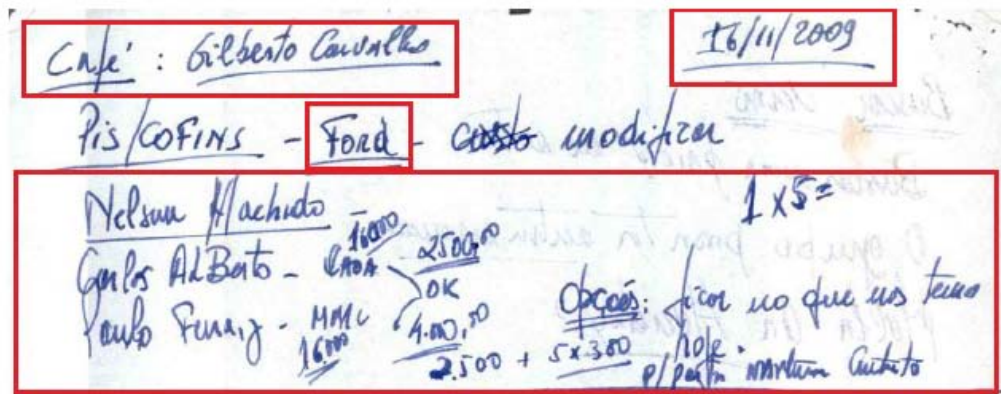 Café : Gilberto Carvalho 16/11/2009
Pis/COFINS - Ford - modificar
Nelson Machado 1 x 5=
Carlos AlBerto - CAOA 16000 2500,00
OK
Paulo Ferraz - MMC 16000 4.000,00
Opções: ficar no que nós temos
2.500 + 5 x 300 hoje
p/